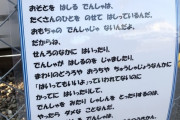 おそとを はしる でんしゃは、
たくさんのひとを のせて はしっているんだ。
おもちゃの でんしゃじゃ ないんだよ。
だからね。
せんろのなかに はいったり、
でんしゃが はしるのを じゃましたり、
まわりのどうろや おうちや ちゅうしゃじょうなんかに
「はいってもいいよ」っていわれてないのに
かってに はいったりして、
でんしゃを みたり しゃしんを とったりするのは、
やったら ダメな ことなんだ。